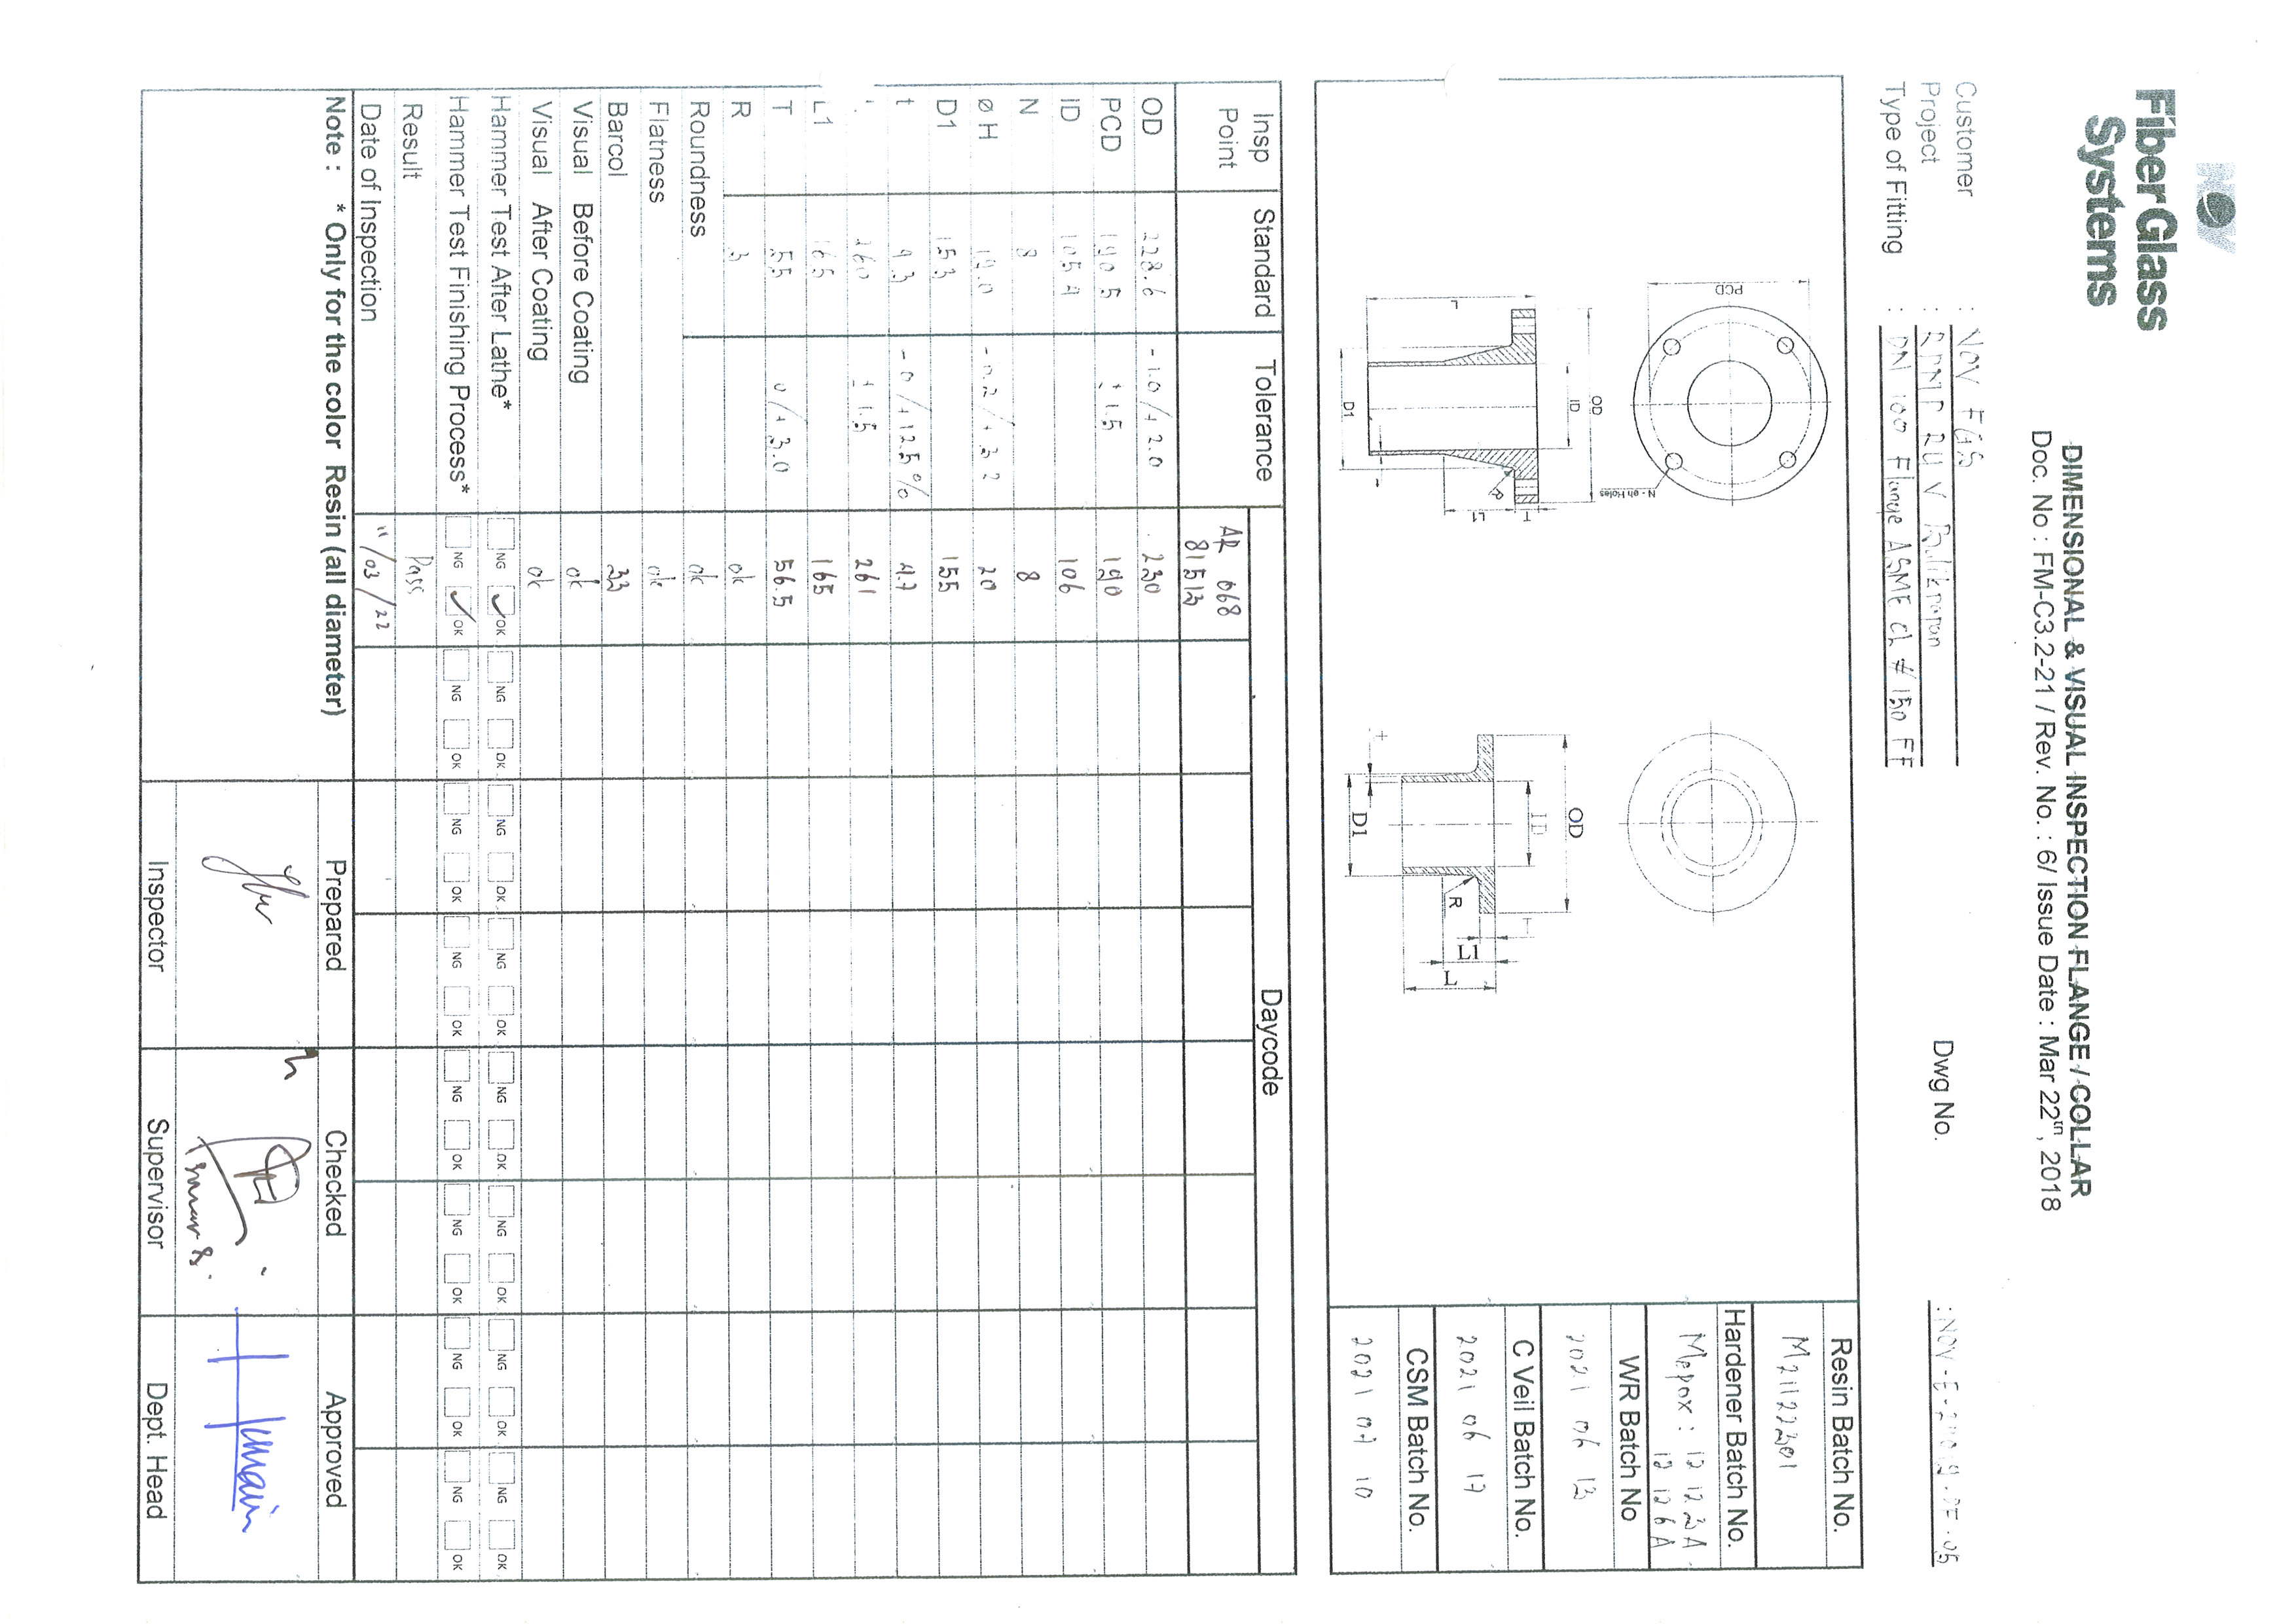 NOV
FiberGlass
Systems
DIMENSIONAL & VISUAL INSPECTION FLANGE / COLLAR
Doc. No : FM-C3.2-21 / Rev. No. : 6/ Issue Date : Mar 22th, 2018
Customer : NOV FGS
Project : RDMP RU V Balikpapan
Type of Fitting : DN 100 Flange ASME CL # 150 FF
Dwg No.
PCD
L
D1
ID
OD
N - øh Holes
R
L1
T
t
D1
ID
OD
R
T
L1
L
Resin Batch No.
M21122301
Hardener Batch No.
1212A
1212 6A
WR Batch No
2021 06 13
C Veil Batch No.
2021 06 17
CSM Batch No.
2021 07 10
Insp Point Standard Tolerance Daycode
AR 068
81513
OD 228.6 -1.0/+2.0 230
PCD 190.5 ± 1.5 190
ID 105.4 106
N 8 8
ø H 19.0 -0.2/+3.2 20
D1 153 155
t 4.3 -0/+12.5% 4.7
260 ± 1.5 261
L1 165 165
T 55 0/+3.0 56.5
R 3 ok
Roundness ok
Flatness ok
Barcol 33
Visual Before Coating ok
Visual After Coating ok
Hammer Test After Lathe* NG ✓ OK NG OK NG OK NG OK NG OK NG OK NG OK NG OK
Hammer Test Finishing Process* NG ✓ OK NG OK NG OK NG OK NG OK NG OK NG OK NG OK
Result Pass
Date of Inspection 11/03/22
Note : * Only for the color Resin (all diameter)
Prepared Checked Approved
Inspector Supervisor Dept. Head